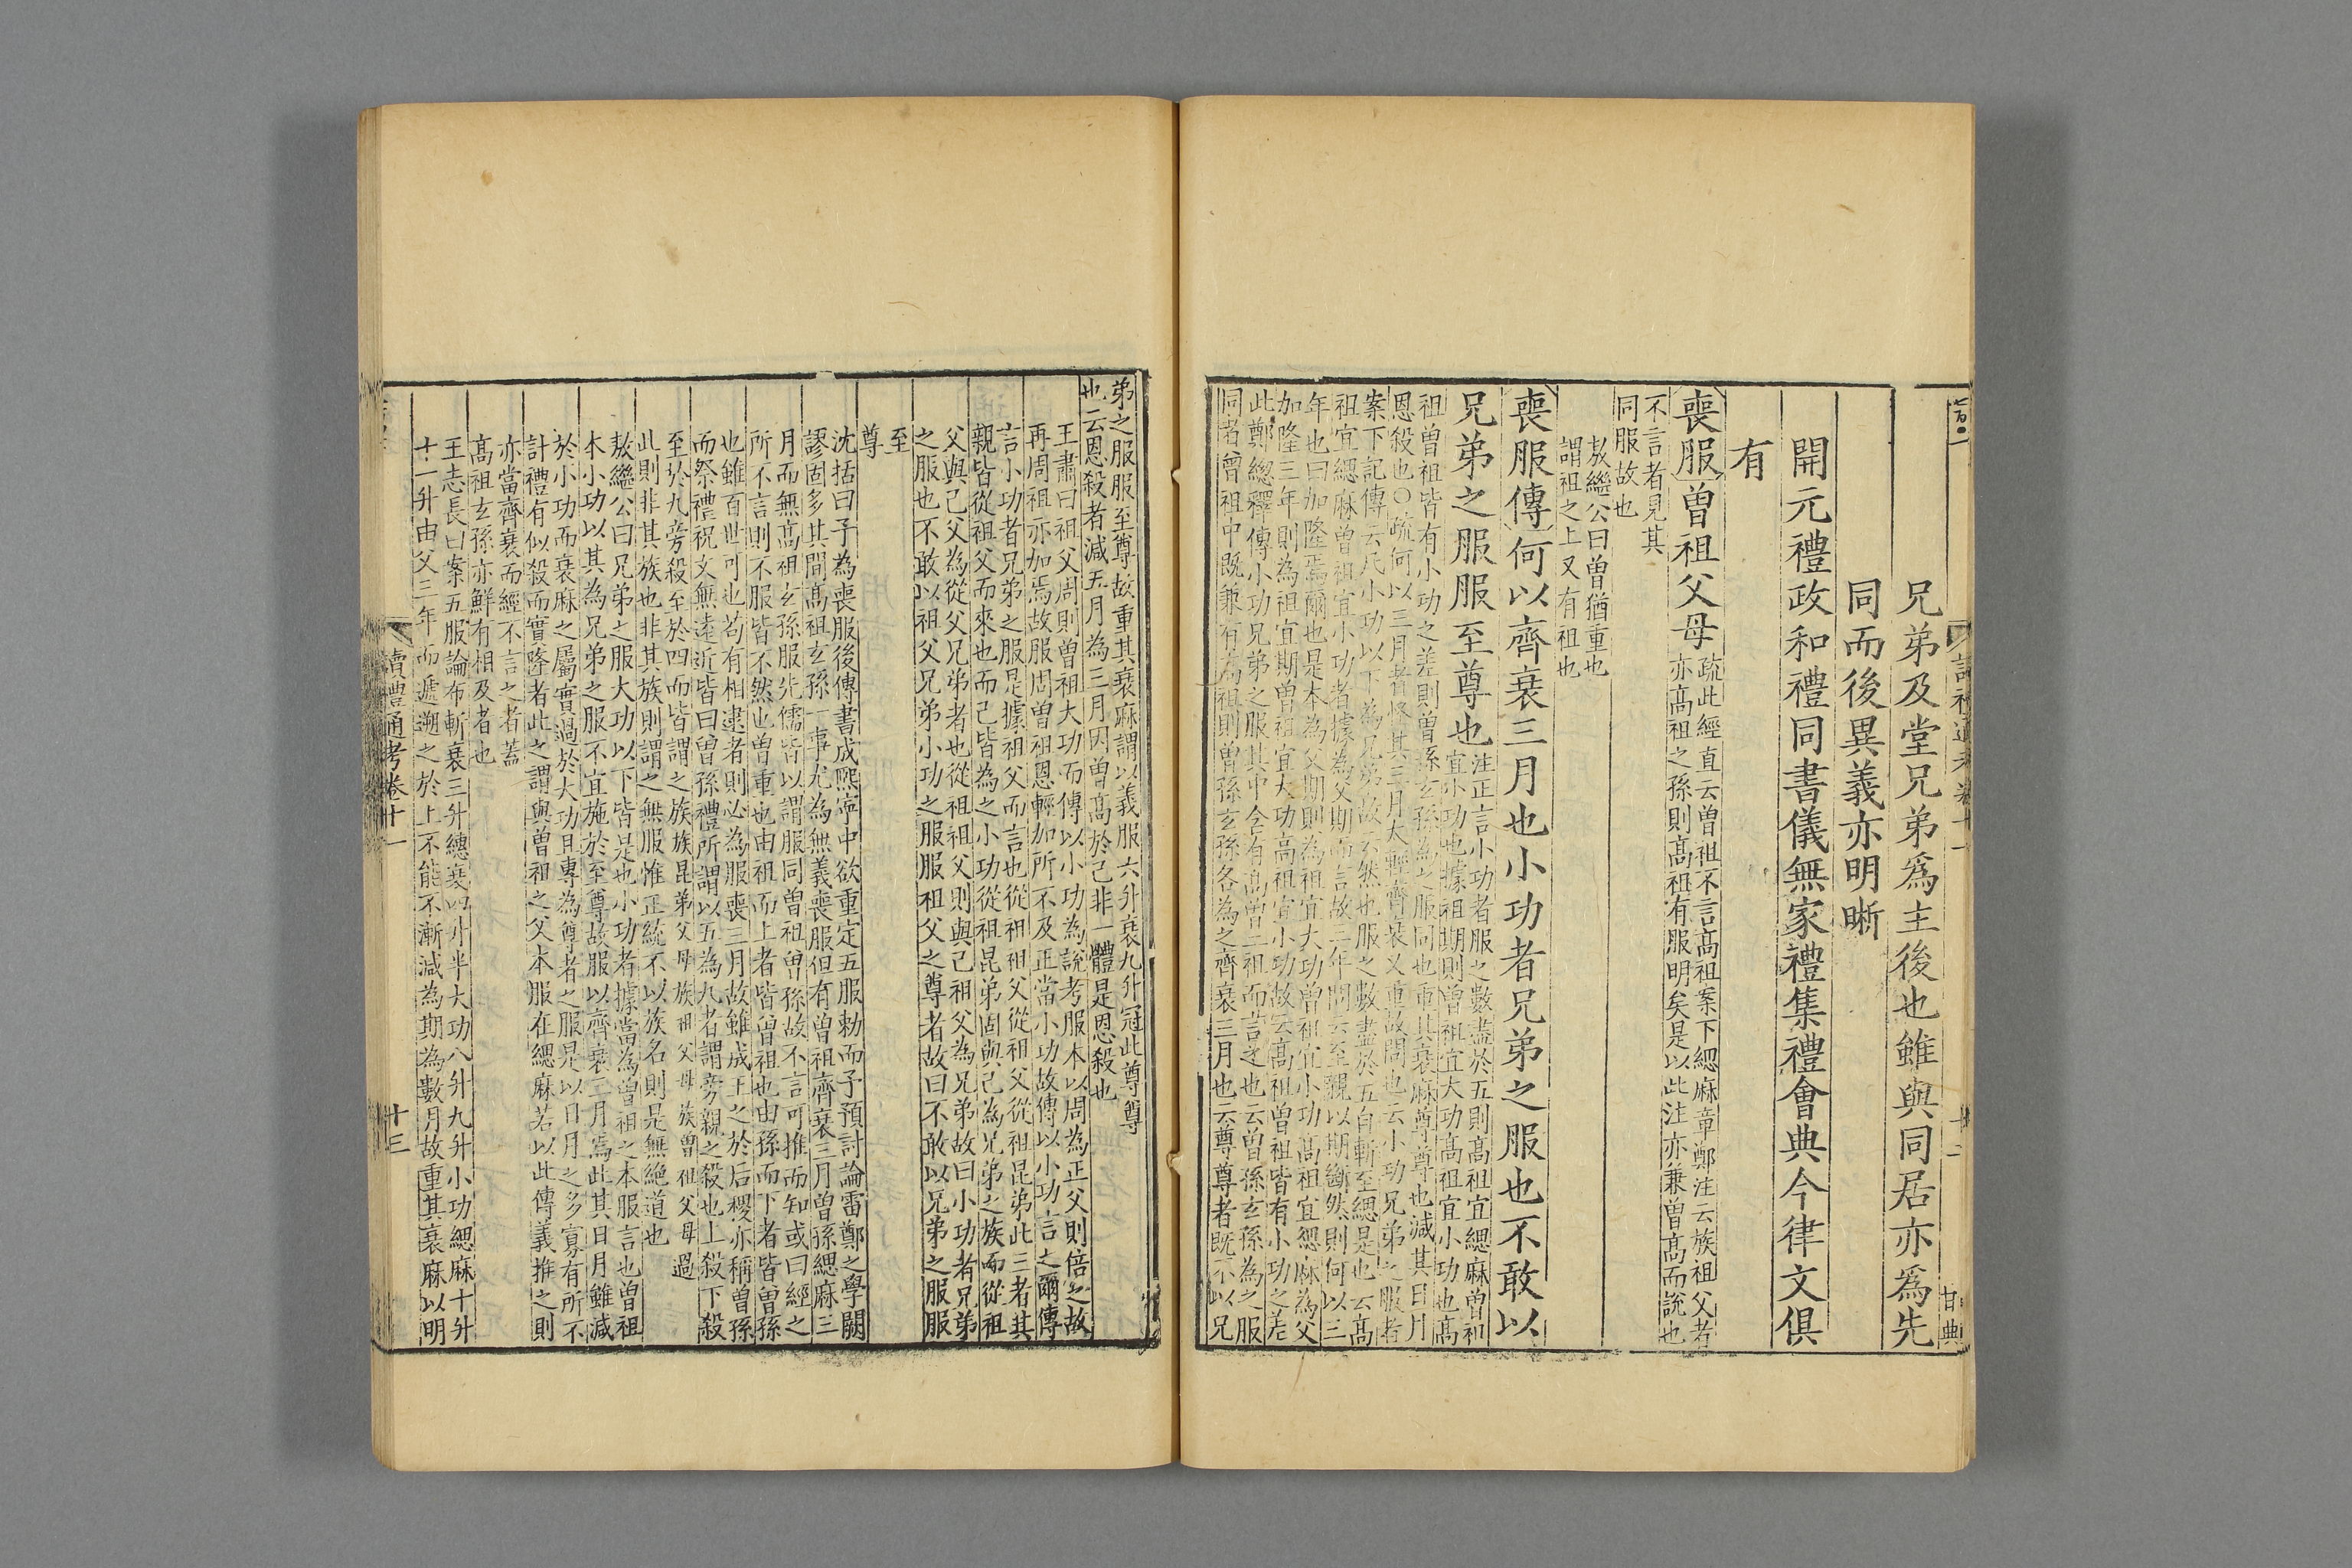 兄弟及堂兄弟爲主後也雖與同居亦爲先
同而後異義亦明晰
開元禮政和禮同書儀無家禮集禮會典今律文俱
有
喪服曾祖父母
疏此經直云曾祖不言髙祖案下緦麻章鄭注云族祖父者
亦髙祖之孫則髙祖有服明矣是以此注亦兼曾髙而說也
不言者見其
同服故也
敖繼公曰曾猶重也
謂祖之上又有祖也
喪服傳何以齊衰三月也小功者兄弟之服也不敢以
兄弟之服服至尊也
注正言小功者服之數盡於五則髙祖宜緦麻曾祖
宜小功也據祖期則曾祖宜大功髙祖宜小功也髙
祖曾祖皆有小功之差則曾孫玄孫為之服同也重其衰麻尊尊也減其日月
恩殺也○疏何以三月者怪其三月大輕齊衰又重故問也云小功兄弟之服者
案下記傳云凡小功以下為兄弟故云然也服之數盡於五自斬至緦是也云髙
祖宜緦麻曾祖宜小功者據為父期而言故三年問云至親以期斷然則何以三
年也曰加隆焉爾也是本為父期則為祖宜大功曾祖宜小功髙祖宜緦麻為父
加隆三年則為祖宜期曾祖宜大功髙祖宜小功故云髙祖曾祖皆有小功之差
此鄭總釋傳小功兄弟之服其中含有髙曾二祖而言之也云曾孫玄孫為之服
同者曾祖中既兼有髙祖則曾孫玄孫各為之齊衰三月也云尊尊者既不以兄
弟之服服至尊故重其衰麻謂以義服六升衰九升冠此尊尊
也云恩殺者減五月為三月因曾髙於己非一體是恩殺也
王肅曰祖父周則曾祖大功而傳以小功為說考服本以周為正父則倍之故
再周祖亦加焉故服周曾祖恩輕加所不及正當小功故傳以小功言之爾傳
言小功者兄弟之服是據祖父而言也從祖祖父從祖父從祖昆弟此三者其
親皆從祖父而來也而己皆為之小功從祖昆弟固與己為兄弟之族而從祖
父與己父為從父兄弟者也從祖祖父則與己祖父為兄弟故曰小功者兄弟
之服也不敢以祖父兄弟小功之服服祖父之尊者故曰不敢以兄弟之服服
至
尊
沈括曰子為喪服後傳書成熙寧中欲重定五服勑而子預討論雷鄭之學闕
謬固多其間髙祖玄孫一事尤為無義喪服但有曾祖齊衰三月曾孫緦麻三
月而無髙祖玄孫服先儒皆以謂服同曾祖曾孫故不言可推而知或曰經之
所不言則不服皆不然也曾重也由祖而上者皆曾祖也由孫而下者皆曾孫
也雖百世可也苟有相逮者則必為服喪三月故雖成王之於后稷亦稱曾孫
而祭禮祝文無遠近皆曰曾孫禮所謂以五為九者謂旁親之殺也上殺下殺
至於九旁殺至於四而皆謂之族族昆弟父母族祖父母族曾祖父母過
此則非其族也非其族則謂之無服惟正統不以族名則是無絶道也
敖繼公曰兄弟之服大功以下皆是也小功者據當為曾祖之本服言也曾祖
本小功以其為兄弟之服不宜施於至尊故服以齊衰三月焉此其日月雖減
於小功而衰麻之屬實過於大功且專為尊者之服是以日月之多寡有所不
計禮有似殺而實隆者此之謂與曾祖之父本服在緦麻若以此傳義推之則
亦當齊衰而經不言之者蓋
髙祖玄孫亦鮮有相及者也
王志長曰案五服論布斬衰三升緦衰四升半大功八升九升小功緦麻十升
十一升由父三年而遞遡之於上不能不漸減為期為數月故重其衰麻以明
讀禮通考卷十一
十三